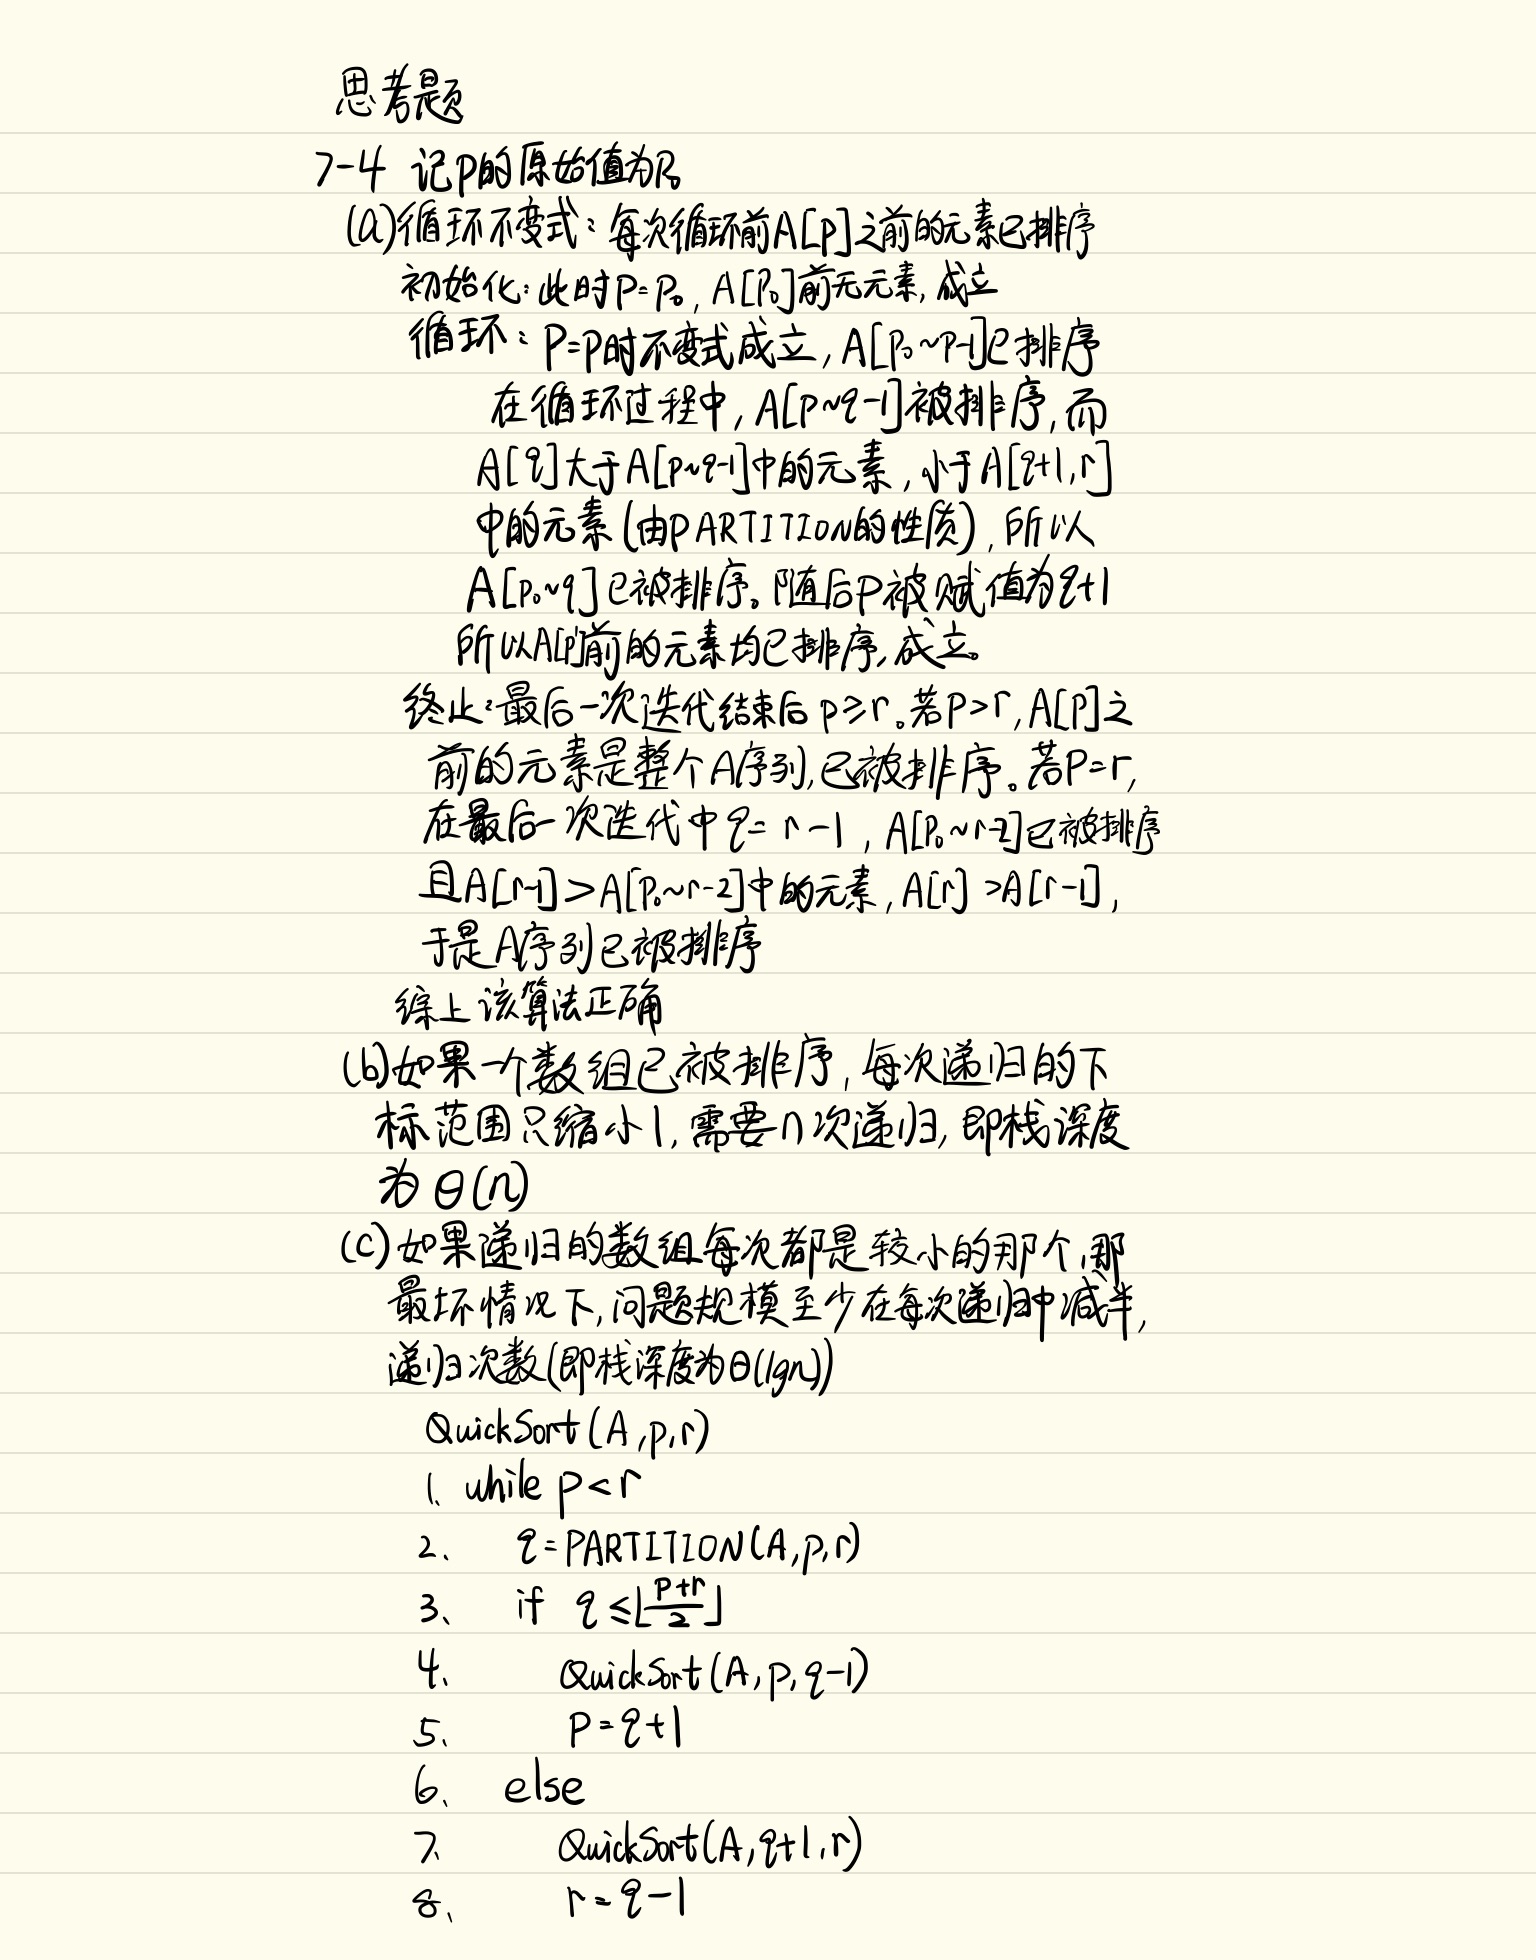 思考题
7-4 记p的原始值为P₀
(a)循环不变式：每次循环前A[p]之前的元素已排序
初始化：此时P=P₀, A[P₀]前无元素, 成立
循环：P=p时不变式成立, A[P₀~P-1]已排序
在循环过程中, A[p~q-1]被排序, 而
A[q]大于A[p~q-1]中的元素, 小于A[q+1,r]
中的元素(由PARTITION的性质), 所以
A[p₀~q]已被排序。随后P被赋值为q+1
所以A[p]前的元素均已排序, 成立。
终止：最后一次迭代结束后 p≥r。若P>r, A[p]之
前的元素是整个A序列, 已被排序。若P=r,
在最后一次迭代中q=r-1, A[P₀~r-2]已被排序
且A[r-1]>A[P₀~r-2]中的元素, A[r]>A[r-1],
于是A序列已被排序
综上该算法正确
(b)如果一个数组已被排序, 每次递归的下
标范围只缩小1, 需要n次递归, 即栈深度
为θ(n)
(c)如果递归的数组每次都是较小的那个, 那
最坏情况下, 问题规模至少在每次递归中减半,
递归次数(即栈深度为θ(lgn))
QuickSort(A,p,r)
1. while p<r
2、 q=PARTITION(A,p,r)
3、 if q≤⌊(p+r)/2⌋
4、 QuickSort(A,p,q-1)
5、 P=q+1
6、 else
7、 QuickSort(A,q+1,r)
8、 r=q-1